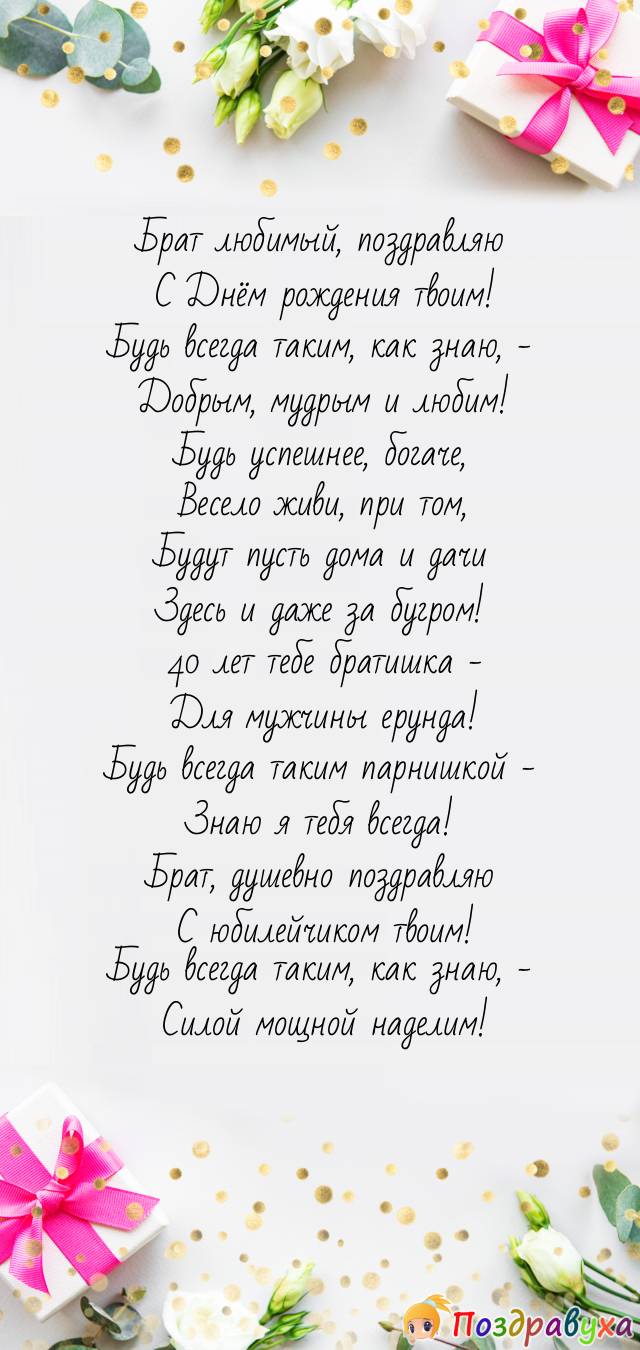 Брат любимый, поздравляю
С Днём рождения твоим!
Будь всегда таким, как знаю, -
Добрым, мудрым и любим!
Будь успешнее, богаче,
Весело живи, при том,
Будут пусть дома и дачи
Здесь и даже за бугром!
40 лет тебе братишка -
Для мужчины ерунда!
Будь всегда таким парнишкой -
Знаю я тебя всегда!
Брат, душевно поздравляю
С юбилейчиком твоим!
Будь всегда таким, как знаю, -
Силой мощной наделим!
Поздравуха